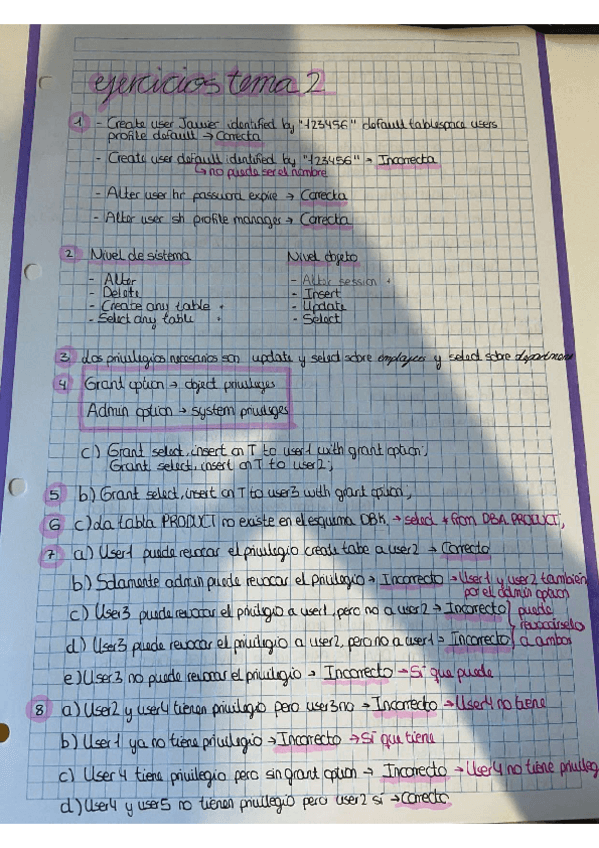 ejercicios tema 2
1 - Create user Javier identified by "123456" default tablespace users
profile default → Correcta
- Create user default identified by "123456" → Incorrecta
↳ no puede ser el nombre
- Alter user hr password expire → Correcta
- Alter user sh profile manager → Correcta
2 Nivel de sistema
- Alter
- Delete
- Create any table
- Select any table
Nivel objeto
- Alter session
- Insert
- Update
- Select
3 Los privilegios necesarios son update y select sobre employees y select sobre departments
4 Grant option → object privileges
Admin option → system privileges
c) Grant select, insert on T to user1 with grant option;
Grant select, insert on T to user2;
5 b) Grant select, insert on T to user3 with grant option;
6 c) La tabla PRODUCT no existe en el esquema DBA → select * from DBA.PRODUCT;
7 a) User1 puede revocar el privilegio create table a user2 → Correcto
b) Solamente admin puede revocar el privilegio → Incorrecto → User1 y user2 también
por el admin option
c) User3 puede revocar el privilegio a user1, pero no a user2 → Incorrecto } puede
revocárselos
d) User3 puede revocar el privilegio a user2, pero no a user1 → Incorrecto } a ambos
e) User3 no puede revocar el privilegio → Incorrecto → Sí que puede
8 a) User2 y user4 tienen privilegio pero user3 no → Incorrecto → User4 no tiene
b) User1 ya no tiene privilegio → Incorrecto → Sí que tiene
c) User4 tiene privilegio pero sin grant option → Incorrecto → User4 no tiene privileg
d) User4 y user5 no tienen privilegio pero user2 sí → Correcto